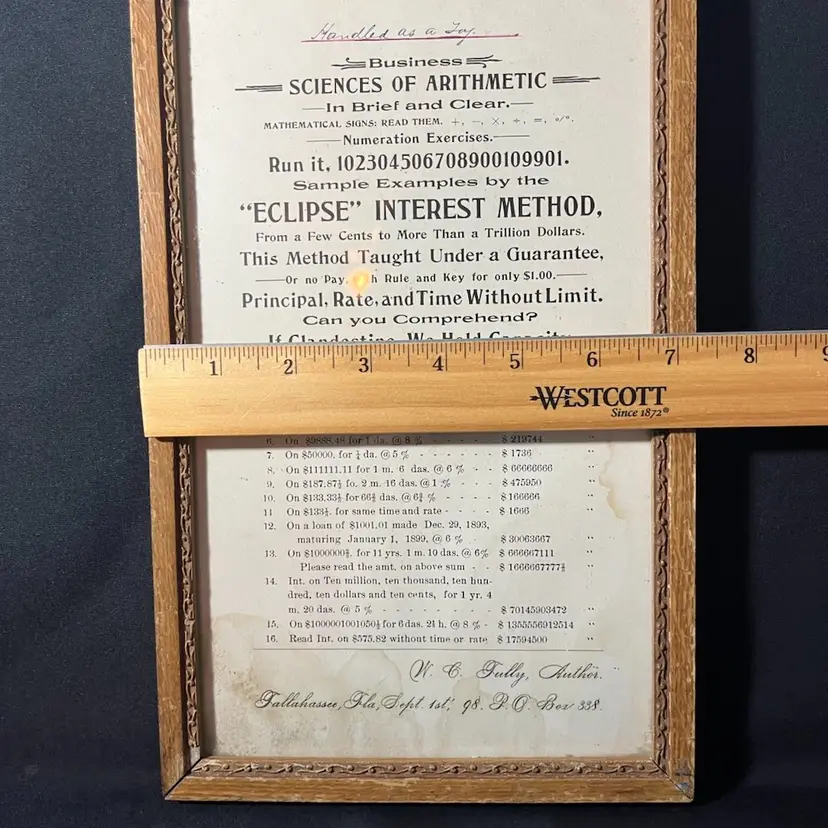 Handled as a Toy.
Business
SCIENCES OF ARITHMETIC
In Brief and Clear.
MATHEMATICAL SIGNS: READ THEM. +, −, ×, ÷, =, %.
Numeration Exercises.
Run it, 102304506708900109901.
Sample Examples by the
"ECLIPSE" INTEREST METHOD,
From a Few Cents to More Than a Trillion Dollars.
This Method Taught Under a Guarantee,
Or no Pay. Rule and Key for only $1.00.
Principal, Rate, and Time Without Limit.
Can you Comprehend?
If Clandestine, We Hold Capacity
1 2 3 4 5 6 7 8 9
WESTCOTT
Since 1872®
6. On $9888.48 for 1 da. @ 8 % - - - - - $ 219744 "
7. On $50000. for ¼ da. @ 5 % - - - - - $ 1736 "
8. On $111111.11 for 1 m. 6 das. @ 6 % - - $ 66666666 "
9. On $187.87½ fo. 2 m. 16 das. @ 1 % - - $ 475950 "
10. On $133.33⅓ for 66⅔ das. @ 6¾ % - - - - $ 166666 "
11 On $133⅓. for same time and rate - - - - $ 1666 "
12. On a loan of $1001.01 made Dec. 29, 1893,
maturing January 1, 1899. @ 6 % - - $ 30063667 "
13. On $1000000⅔. for 11 yrs. 1 m. 10 das. @ 6% $ 666667111 "
Please read the amt. on above sum - - $ 1666667777⅔ "
14. Int. on Ten million, ten thousand, ten hun-
dred, ten dollars and ten cents, for 1 yr. 4
m. 20 das. @ 5 % - - - - - $ 70145903472 "
15. On $1000001001050½ for 6 das. 2½ h. @ 8 % - $ 1355556912514 "
16. Read Int. on $575.82 without time or rate $ 17594500 "
W. C. Tully, Author.
Tallahassee, Fla, Sept. 1st, '98. P. O. Box 338.